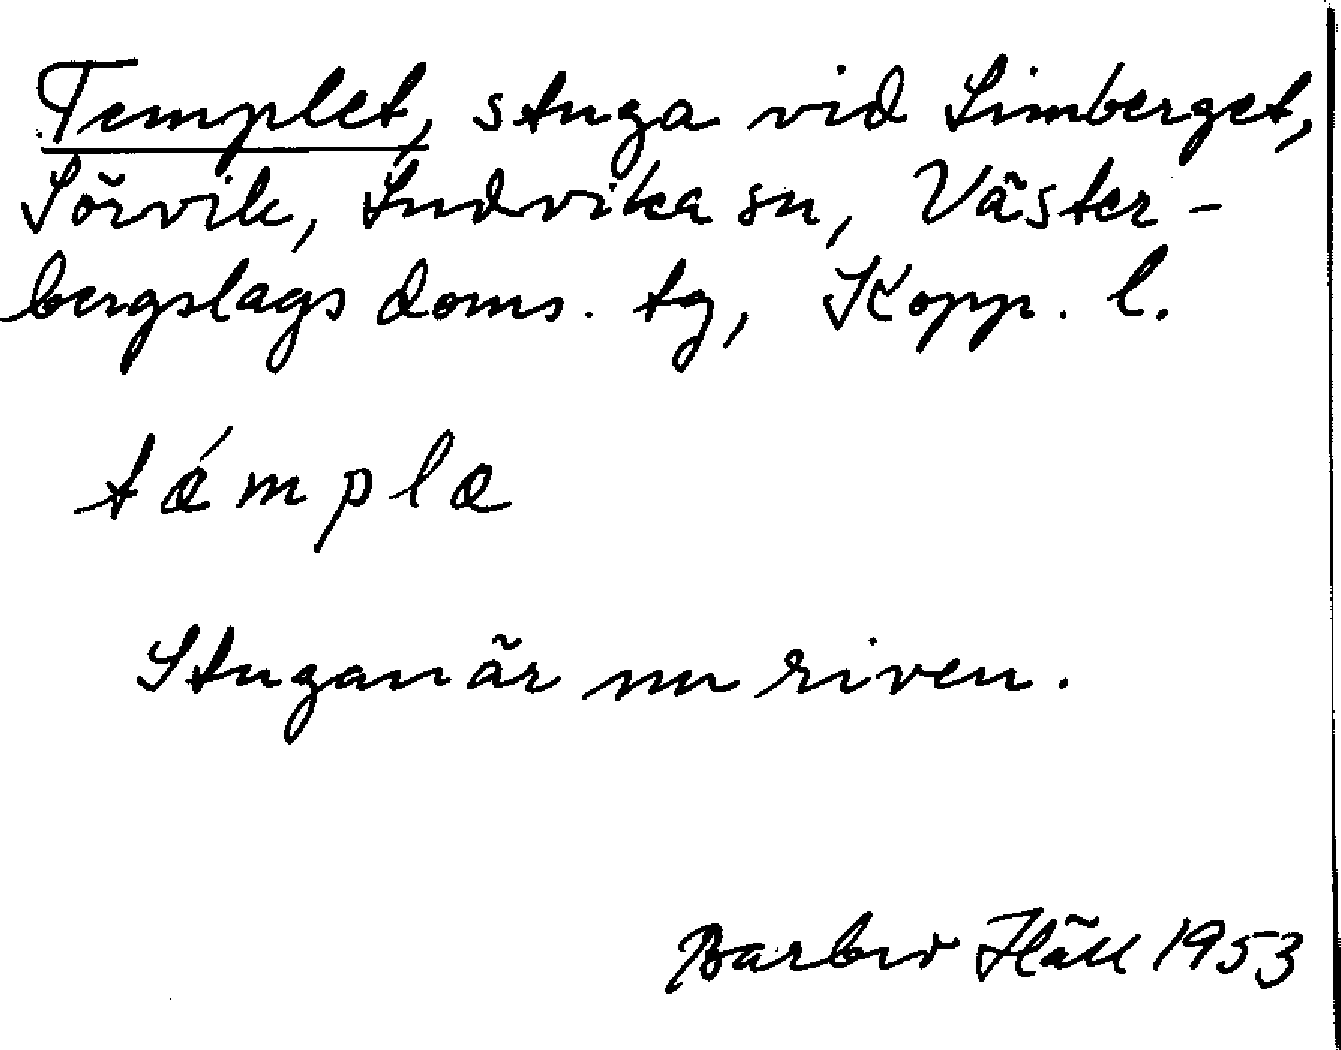 Templet, stuga vid Limberget,
Sörvik, Ludvika sn, Väster-
bergslags doms. tg, Kopp. l.
tǽmplæ
Stugan är nu riven.
Barbro Häll 1953